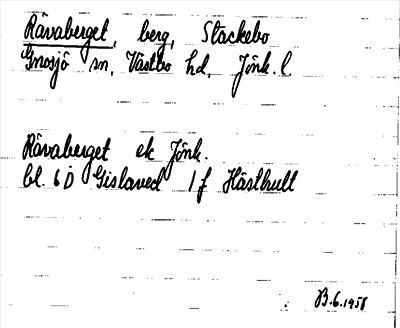 Rävaberget, berg, Stackebo
Gnosjö sn, Västbo hd, Jönk. l.
Rävaberget ek Jönk.
bl. 6 D Gislaved 1 f Hästhult
B.6.1958